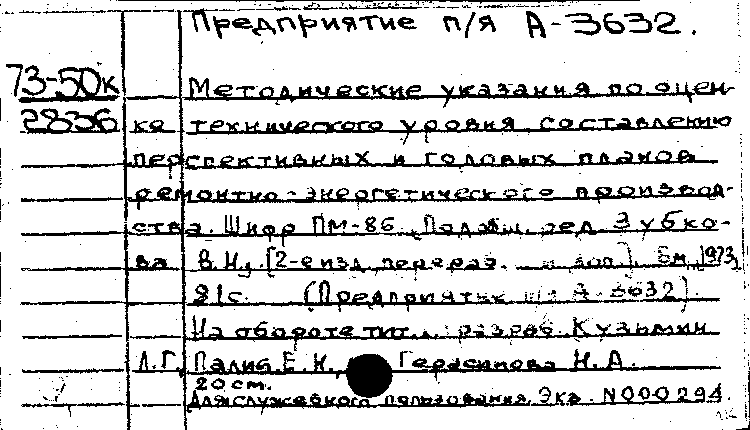 Предприятие п/я А-3632.
73-50к Методические указания по оцен-
2836 ке технического уровня, составлению
перспективных и годовых планов
ремонтно-энергетического производ-
ства. Шифр ПМ-86. Под общ. ред. Зубко-
ва В.Н. [2-е изд. перераб. и доп.]. Бм, 1973,
81с. (Предприятие п/я А-3632).
На обороте тит. л.: разраб. Кузьмин
Л.Г., Палив Е.Н., Герасимова Н.А.
20 см.
Для служебного пользования. Экз. N000294.